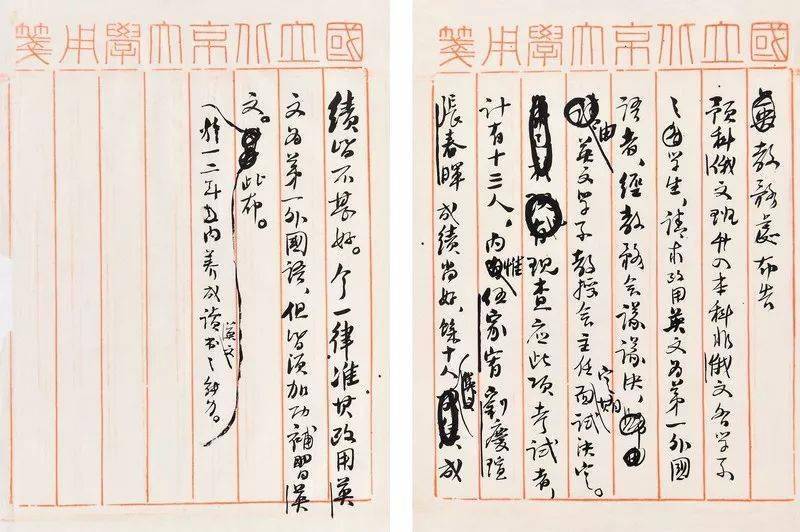 國立北京大學用箋
教務處布告
預科俄文班升入本科非俄文各學系
之學生,請求改用英文為第一外國
語者,經教務會議議決,
由英文學系教授會主任定期面試決定。
現查應此項考試者,
計有十三人,內惟伍家宥劉慶瑄
張春暉成績尚好,餘十人成
國立北京大學用箋
績皆不甚好。今一律准其改用英
文為第一外國語,但皆須加功補習英
文。此布。
惟一二年內養成讀英文書之能力。